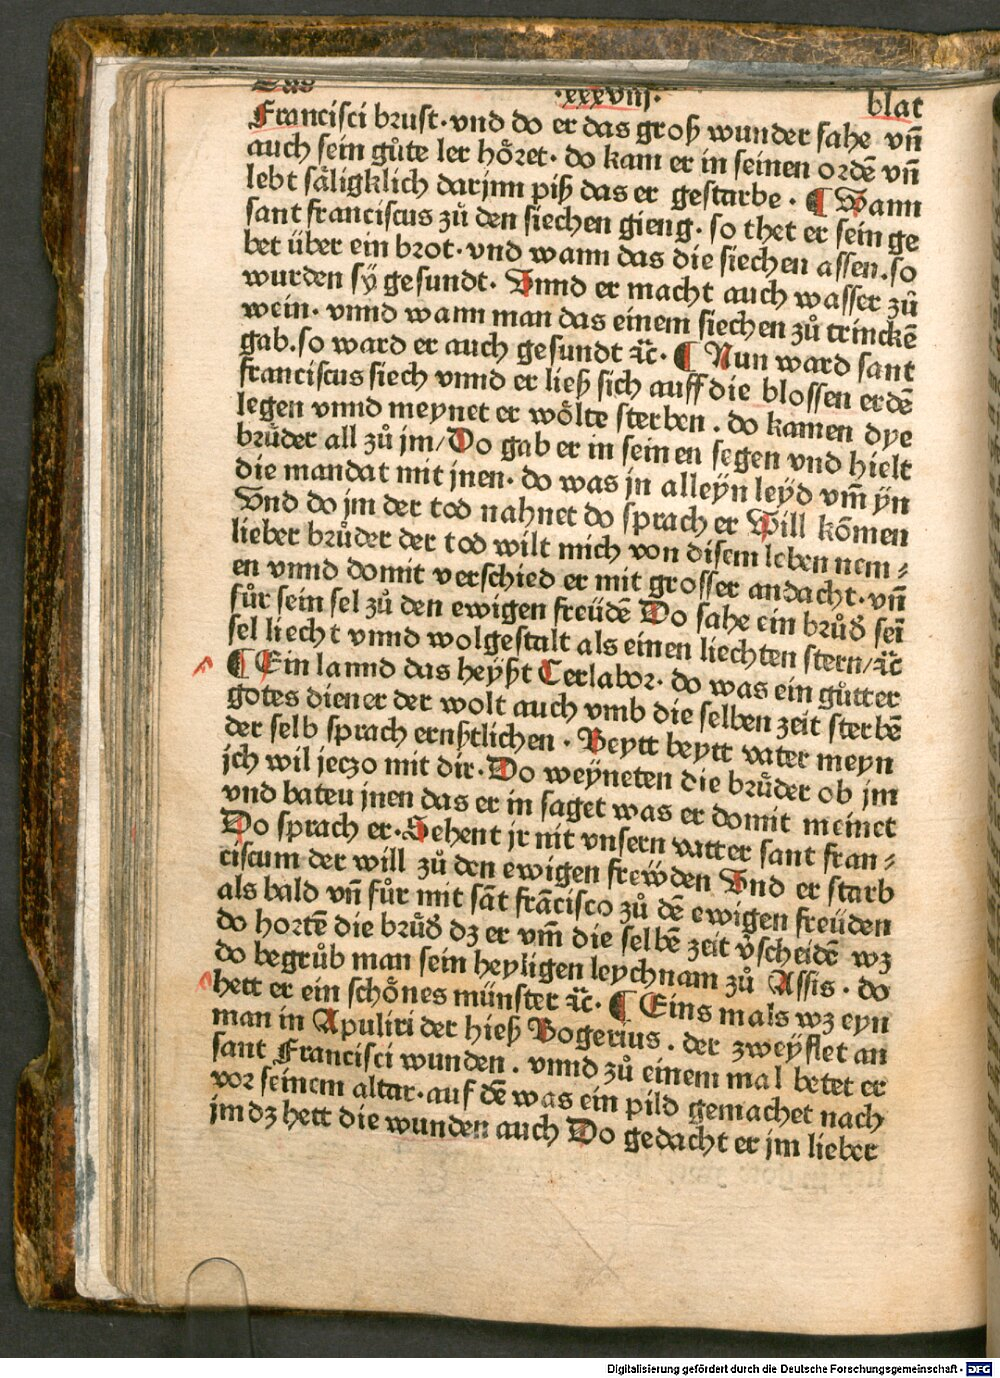 Das .xxxviij. blat
Francisci brust. vnd do er das groß wunder sahe vn̄
auch sein gůte ler hôret. do kam er in seinen ordē vn̄
lebt sâligklich darjnn piß das er gestarbe. ¶ Wann
sant franciscus zů den siechen gieng. so thet er sein ge
bet über ein brot. vnd wann das die siechen assen. so
wurden sÿ gesundt. Vnnd er macht auch wasser zů
wein. vnnd wann man das einem siechen zů trinckē
gab. so ward er auch gesundt ⁊c̄. ¶ Nun ward sant
franciscus siech vnnd er ließ sich auff die blossen erdē
legen vnnd meynet er wôlte sterben. do kamen dye
brůder all zů jm/ Do gab er in seinen segen vnd hielt
die mandat mit jnen. do was jn alleÿn leÿd vm̄ ÿn
Vnd do jm der tod nahnet do sprach er Will kōmen
lieber brůder der tod wilt mich von disem leben nem⸗
en vnnd domit verschied er mit grosser andacht. vn̄
fůr sein sel zů den ewigen freüdē Do sahe ein brůd̓ sei̅
sel liecht vnnd wolgestalt als einen liechten stern/ ⁊c̄
¶ Ein lannd das heÿßt Terlabor. do was ein gůtter
gotes diener der wolt auch vmb die selben zeit sterbē
der selb sprach ernßtlichen. Beytt beytt vater meyn
jch wil jeczo mit dir. Do weÿneten die brůder ob jm
vnd bateu jnen das er in saget was er domit meinet
Do sprach er. Sehent jr nit vnsern vatter sant fran⸗
ciscum der will zů den ewigen frewden Vnd er starb
als bald vn̄ fůr mit sāt frācisco zů dē ewigen freüden
do hortē die brůd̓ dz er vm̄ die selbē zeit v̓scheidē wz
do begrůb man sein heyligen leychnam zů Assis. do
hett er ein schônes münster ⁊c̄. ¶ Eins mals wz eyn
man in Apuliri der hieß Rogerius. der zweÿflet an
sant Francisci wunden. vnnd zů einem mal betet er
vor seinem altar. auf dē was ein pild gemachet nach
jm dz hett die wunden auch Do gedacht er jm lieber
Digitalisierung gefördert durch die Deutsche Forschungsgemeinschaft - DFG